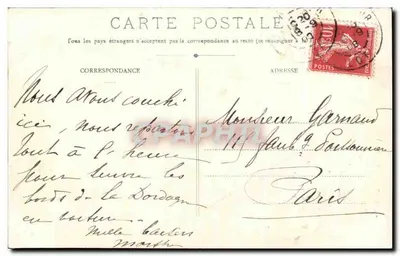 CARTE POSTALE
Tous les pays étrangers n'acceptent pas la correspondance au recto (se renseigner à
CORRESPONDANCE
ADRESSE
Nous avons couché
ici, nous repartons
tout à l'heure
pour suivre les
bords de la Dordogne
en voiture
Mille baisers
Monsieur Garnaud
115 Faub g Poissonnière
Paris